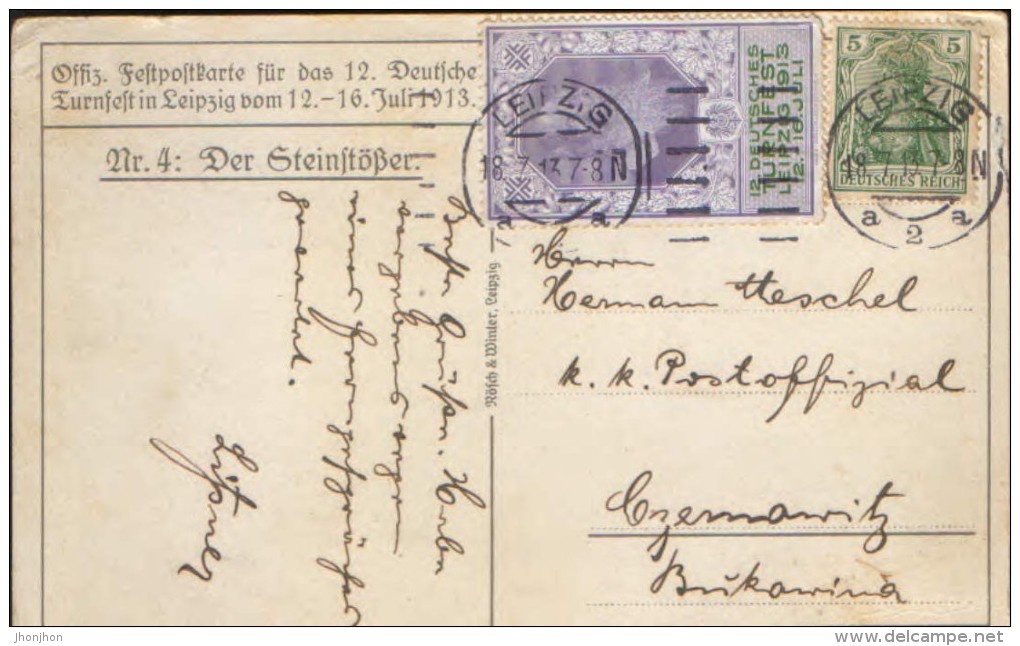 Offiz. Festpostkarte für das 12. Deutsche
Turnfest in Leipzig vom 12.-16. Juli 1913.
Nr. 4: Der Steinstößer.
12. DEUTSCHES
TURNFEST
LEIPZIG 1913
12.-16. JULI
5 5
DEUTSCHES REICH
LEIPZIG
18.7.13.7-8N
a a
LEIPZIG
18.7.13.7-8N
a 2 a
Rösch & Winter, Leipzig
Grüße. Haben
gewartet.
Herrn
Hermann Heschel
k. k. Postoffizial
Czernowitz
Bukowina
jhonjhon
www.delcampe.net